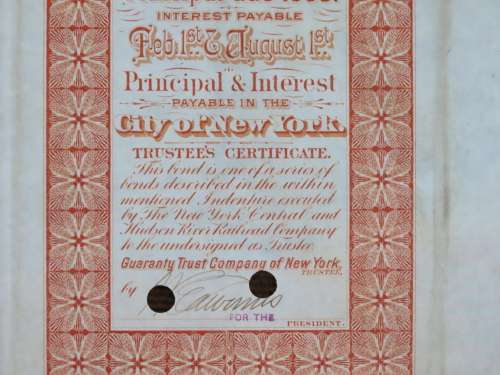 INTEREST PAYABLE
Feb. 1st & August 1st
Principal & Interest
PAYABLE IN THE
City of New York.
TRUSTEE'S CERTIFICATE.
This bond is one of a series of
bonds described in the within
mentioned Indenture executed
by The New York Central and
Hudson River Railroad Company
to the undersigned as Trustee
Guaranty Trust Company of New York,
TRUSTEE,
by
FOR THE
PRESIDENT.